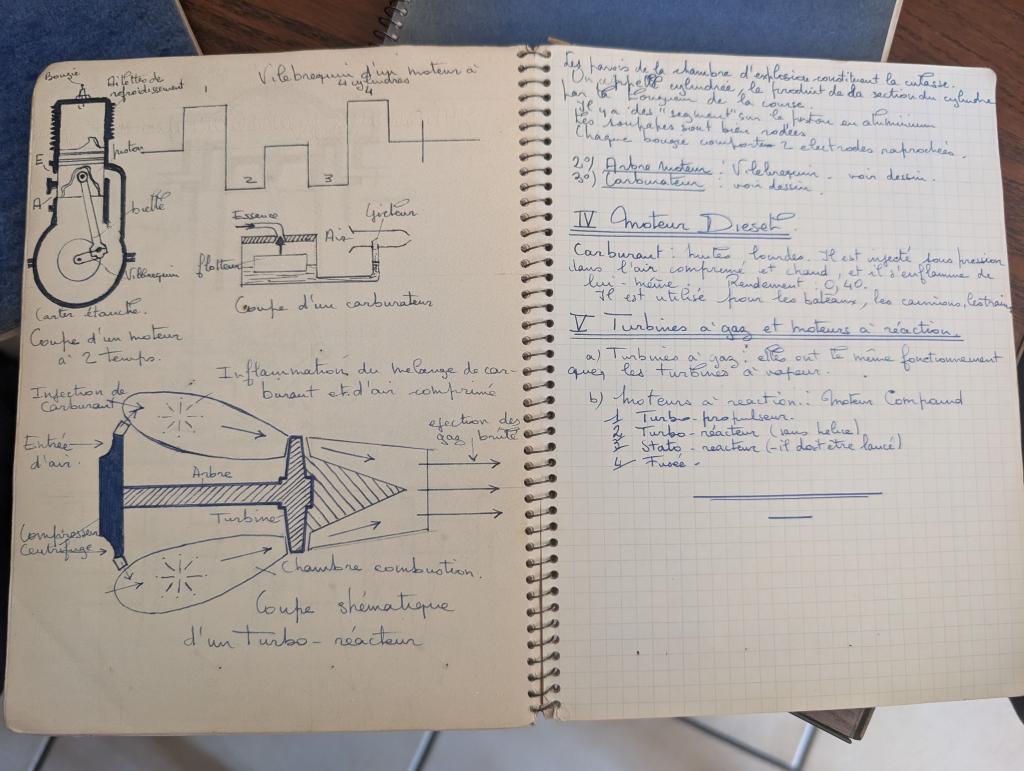 Bougie
Ailettes de
refroidissement
E
piston
A
bielle
Vilbrequin
Carter étanche.
Coupe d'un moteur
à 2 temps.
Vilebrequin d'un moteur à
4 cylindres
1
4
2
3
Essence
Gicleur
Air
flotteur
Coupe d'un carburateur
Inflammation du mélange de car-
burant et d'air comprimé
Injection de
Carburant
Entrée
d'air.
Arbre
Turbine
ejection des
gaz brulé
Compresseur
Centrifuge
Chambre combustion.
Coupe shématique
d'un Turbo-réacteur
Les parois de la chambre d'explosion constituent la culasse.
On appelle cylindrée, le produit de la section du cylindre
par la longueur de la course.
Il y a des "segment" sur le piston en aluminium
Les soupapes sont bien rodées
Chaque bougie comporte 2 electrodes raprochées.
2°) Arbre moteur : Vilebrequin - voir dessin.
3°) Carburateur : voir dessin.
IV Moteur Diesel.
Carburant : huiles lourdes. Il est injecté sous pression
dans l'air comprimé et chaud, et il s'enflamme de
lui-même. Rendement : 0,40.
Il est utilisé pour les bateaux, les camions, les trains
V Turbines à gaz et moteurs à réaction.
a) Turbines à gaz : elles ont le même fonctionnement
que les turbines à vapeur.
b) Moteurs à reaction : Moteur Compound
1 Turbo-propulseur.
2 Turbo-réacteur (sans hélice)
3 Stato-réacteur (-il doit être lancé)
4 Fusée -